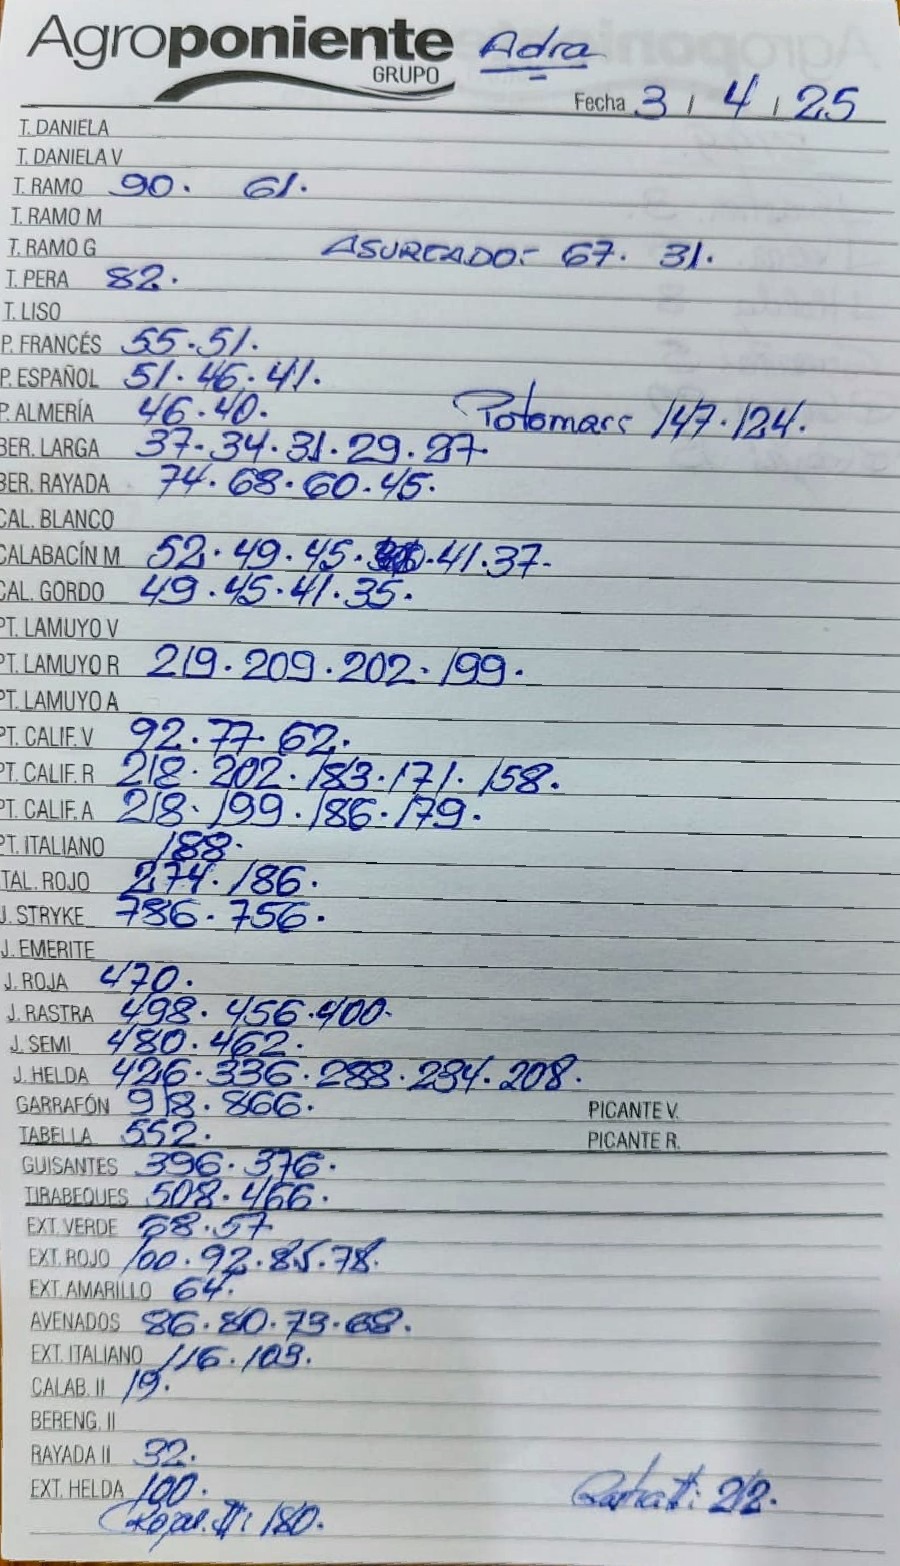 Agroponiente Adra
GRUPO
Fecha 3 / 4 / 25
T. DANELA
T. DANIELA V
T. RAMO 90. 61.
T. RAMO M
T. RAMO G ASURCADO:- 67. 31.
T. PERA 82.
T. LISO
P. FRANCÉS 55.51.
P. ESPAÑOL 51.46.41.
P. ALMERÍA 46.40. 147.124.
BER. LARGA 37.34.31.29.27.
BER. RAYADA 74.68.60.45.
CAL. BLANCO
CALABACÍN M 52.49.45. .41.37.
CAL. GORDO 49.45.41.35.
PT. LAMUYO V
PT. LAMUYO R 219.209.202.199.
PT. LAMUYO A
PT. CALIF. V 92.77.62.
PT. CALIF. R 218.202.183.171.158.
PT. CALIF. A 218.199.186.179.
PT. ITALIANO 188.
TAL. ROJO 274.186.
J. STRYKE 786.756.
J. EMERITE
J. ROJA 470.
J. RASTRA 498.456.400.
J. SEMI 480.462.
J. HELDA 426.336.288.234.208.
GARRAFÓN 918.866. PICANTE V.
TABELLA 552. PICANTE R.
GUISANTES 396.376.
TIRABEQUES 508.466.
EXT. VERDE 68.57
EXT. ROJO 100.92.85.78.
EXT. AMARILLO 64.
AVENADOS 86.80.73.68.
EXT. ITALIANO 116.103.
CALAB. II 19.
BERENG. II
RAYADA II 32.
EXT. HELDA 100. 212.
II: 180.